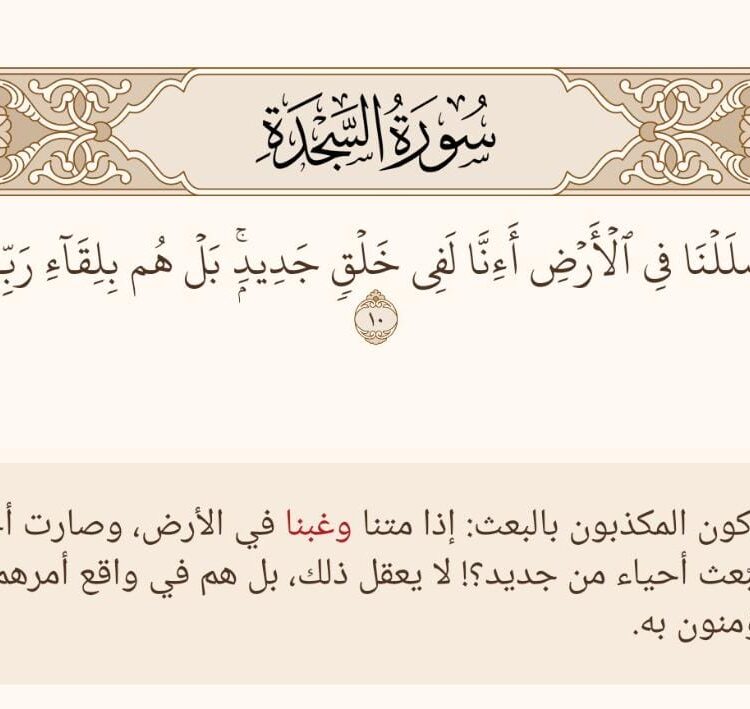 سُورَةُ السَّجْدَةِ
فِي ٱلْأَرْضِ أَءِنَّا لَفِى خَلْقٍ جَدِيدٍۭ ۚ بَلْ هُم بِلِقَآءِ
١٠
المكذبون بالبعث: إذا متنا وغبنا في الأرض، وصارت
أحياء من جديد؟! لا يعقل ذلك، بل هم في واقع أمرهم
به.